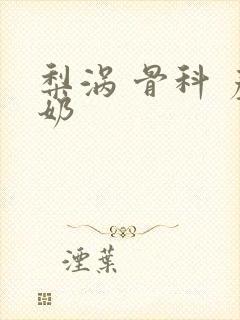 梨涡 骨科
奶
湮葉